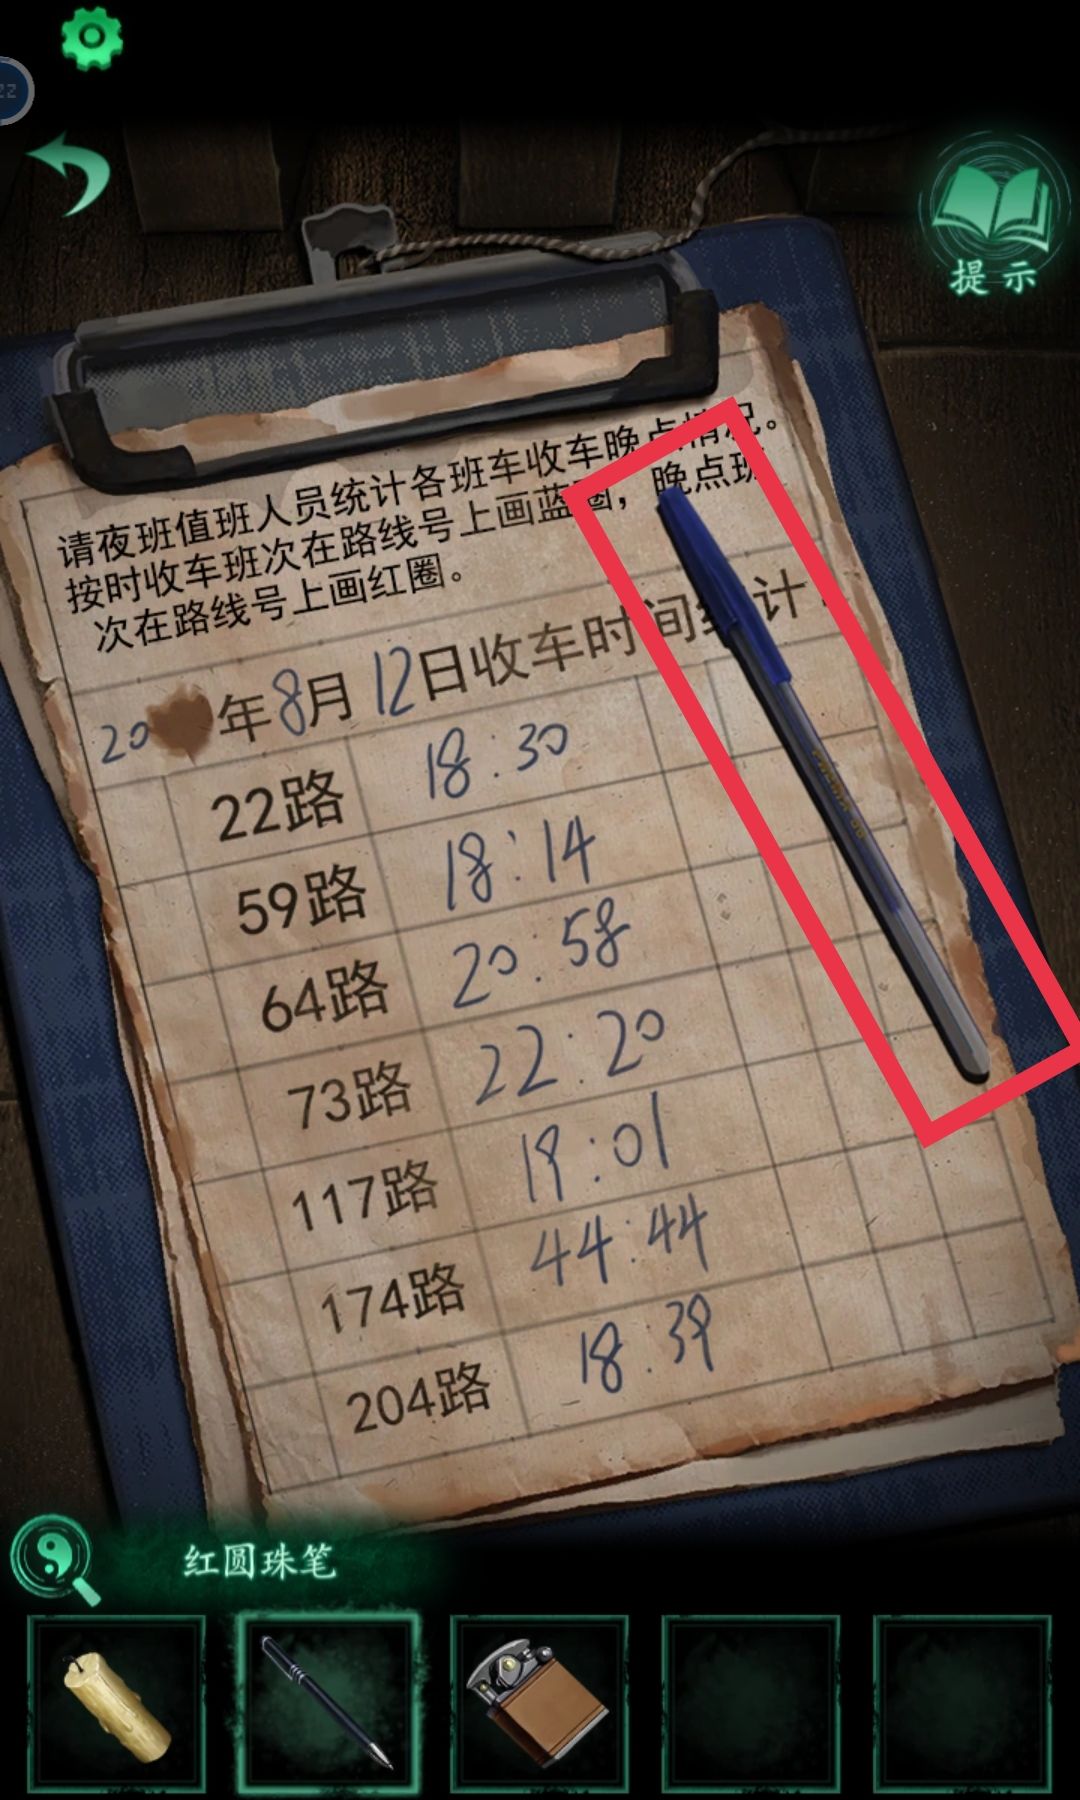 22
提示
请夜班值班人员统计各班车收车晚点情况。
按时收车班次在路线号上画蓝圈，晚点班
次在路线号上画红圈。
20 年8月12日收车时间统计
22路 18:30
59路 18:14
64路 20:58
73路 22:20
117路 19:01
174路 44:44
204路 18:39
红圆珠笔